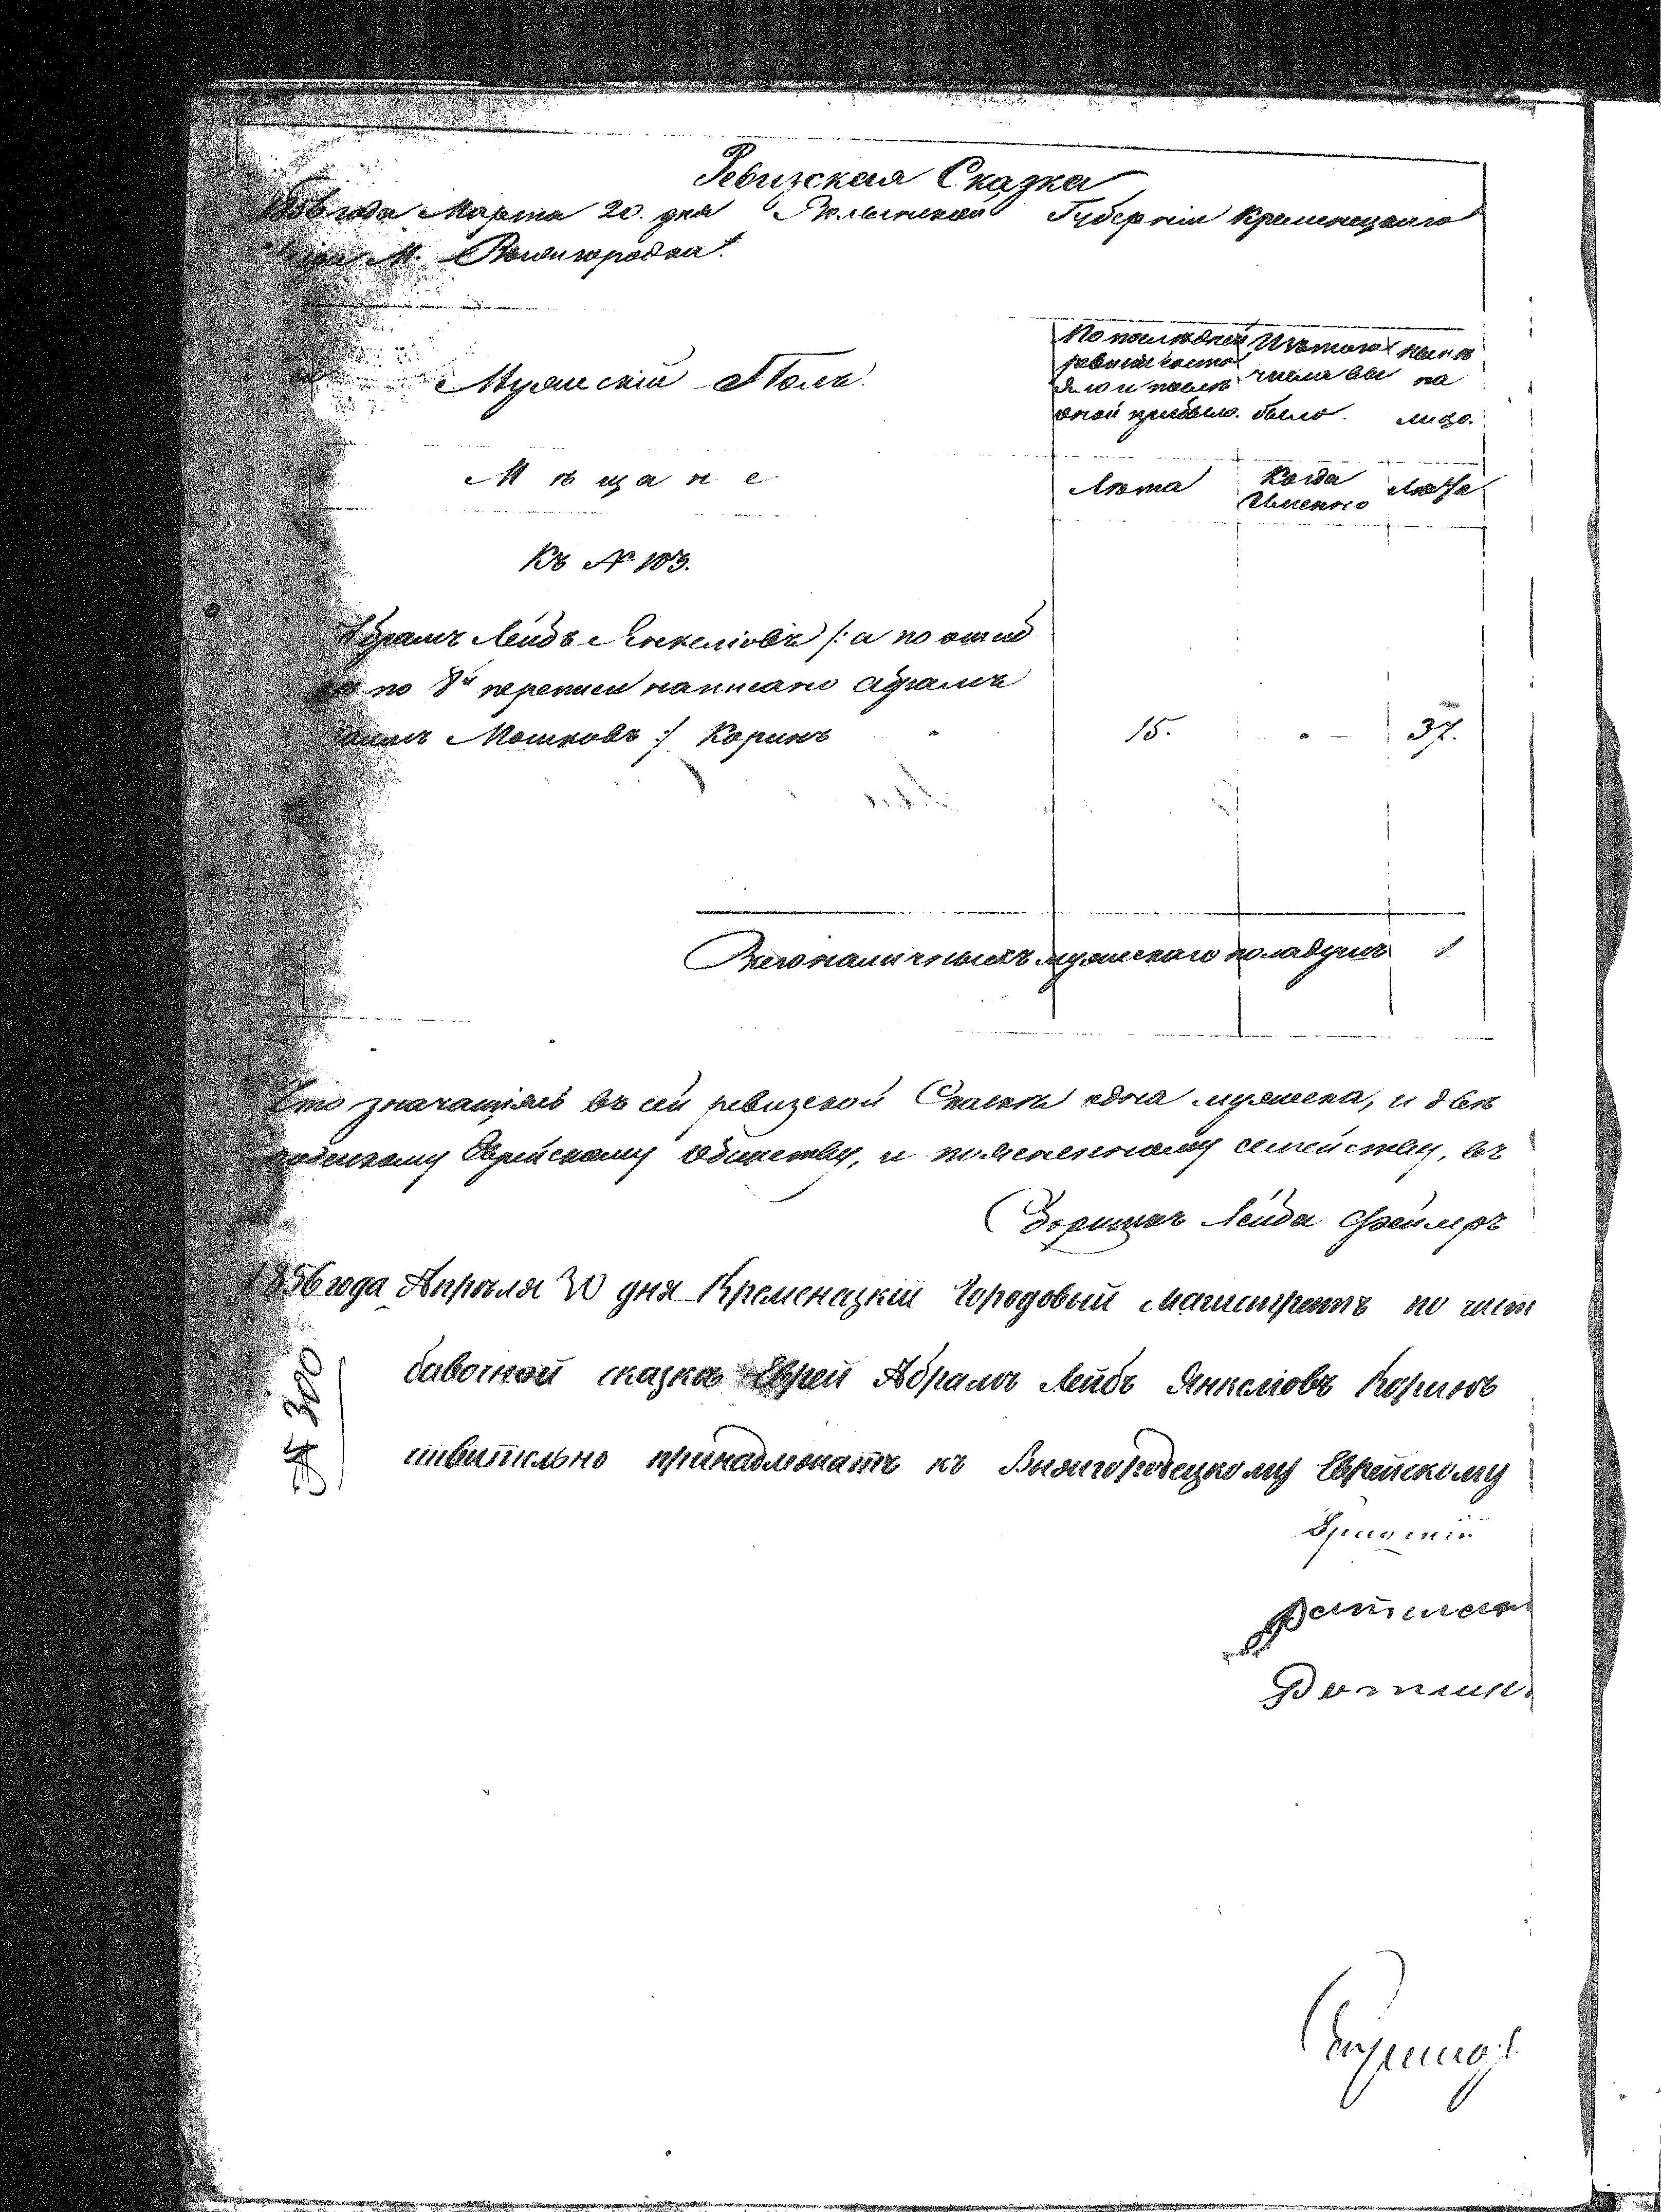 Ревизская Сказка
1856 года Марта 20. дня Волынской Губерніи Кременецкаго
М. Вышгородка.
Мужескій Полъ.
По последней ревизіи состо яло и после оной прибыло.
Изъ того числа вы было.
Ныне на лицо.
Мѣщане
Лѣта
Когда Именно
Лѣта
Къ № 103.
Абрамъ Лейбъ Янкеліовъ /: а по ошиб
по 8й переписи написано Абрамъ
Хаимъ Мошковъ :/ Коринъ " 15. " — 37.
Всего наличныхъ мужескаго пола душъ 1
Что значащіясь въ сей ревизской Сказке одна мужеска, и две
родецкому Еврейскому Обществу, и поясненному семейству, въ
Лейба
1856 года Апрѣля 30 дня Кременецкій Городовый Магистратъ по част
бавочной сказкѣ Еврей Абрамъ Лейбъ Янкеліовъ Коринъ
ствительно принадлежатъ къ Вышгородецкому Еврейскому
№ 300
Ратман
Ратман